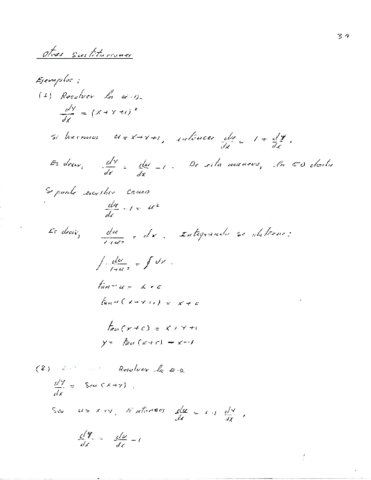 34
Otras sustituciones
Ejemplos:
(1) Resolver la e.d.
dy/dx = (x+y+1)²
Si hacemos u = x+y+1, entonces du/dx = 1 + dy/dx.
Es decir, dy/dx = du/dx - 1. De esta manera, la ED dada
se puede escribir como
du/dx - 1 = u²
Es decir, du/1+u² = dx. Integrando se obtiene:
∫ du/1+u² = ∫ dx.
tan⁻¹ u = x + c
tan⁻¹(x+y+1) = x + c
tan(x+c) = x+y+1
y = tan(x+c) - x - 1
(2) Resolver la e.d.
dy/dx = Sen(x+y).
Sea u = x+y, entonces du/dx = 1 + dy/dx,
dy/dx = du/dx - 1